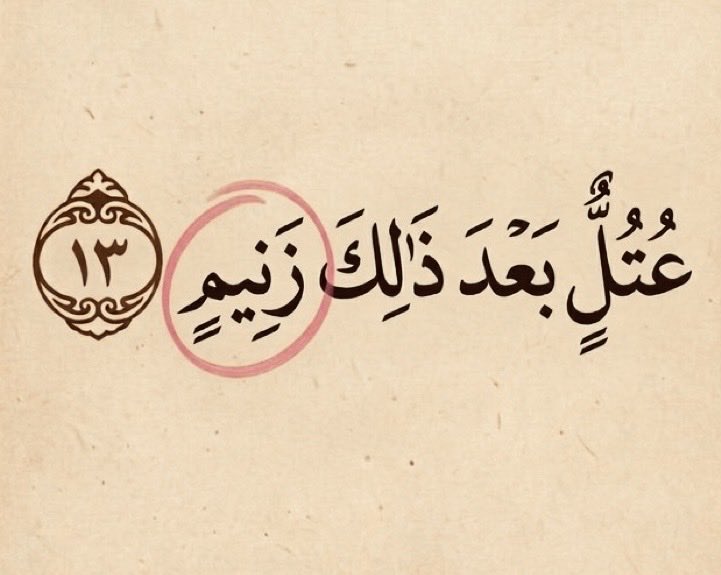 عُتُلٍّ بَعْدَ ذَٰلِكَ زَنِيمٍ ١٣